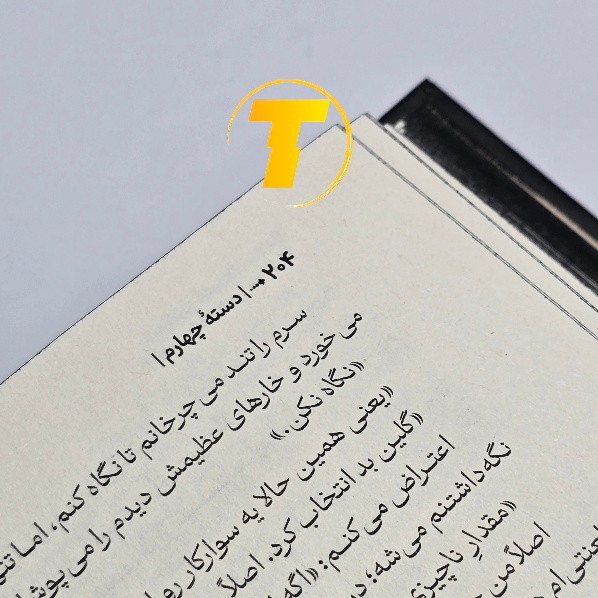 T
۲۰۴ | دستهٔ چهارم |
سرم را تند می‌چرخانم تا نگاه کنم، اما
می‌خورد و خارهای عظیمش دیدم را
«نگاه نکن.»
«یعنی همین حالا یه سوارکار
«گلین بد انتخاب کرد. اصلاً
اعتراض می‌کنم: «اگه
نگه داشتنم می‌شه؛
«مقدارِ ناچیزی
اصلاً من